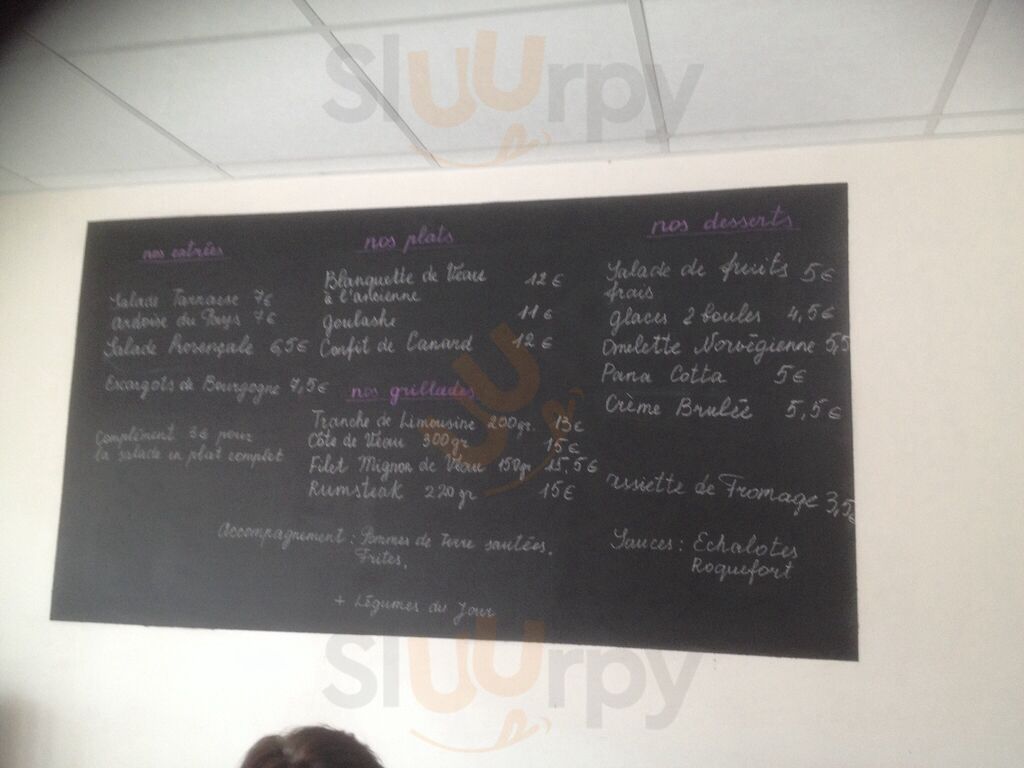 SluUrpy
nos entrées
Salade Tarnaise 7€
ardoise du Pays 7€
Salade Provençale 6,5€
Escargots de Bourgogne 7,5€
Complément 3€ pour
la salade en plat complet
nos plats
Blanquette de Veau 12€
à l'ancienne
goulashe 11€
Confit de Canard 12€
nos grillades
Tranche de Limousine 200gr. 13€
Côte de Veau 300gr 15€
Filet Mignon de Veau 150gr 15,5€
Rumsteak 220gr 15€
Accompagnement : Pommes de Terre sautées.
Frites.
+ Légumes du Jour
nos desserts
Salade de fruits 5€
frais
glaces 2 boules 4,5€
Omelette Norvégienne 5,5
Pana Cotta 5€
Crème Brulée 5,5€
assiette de Fromage 3,5€
Sauces : Echalotes
Roquefort
SluUrpy